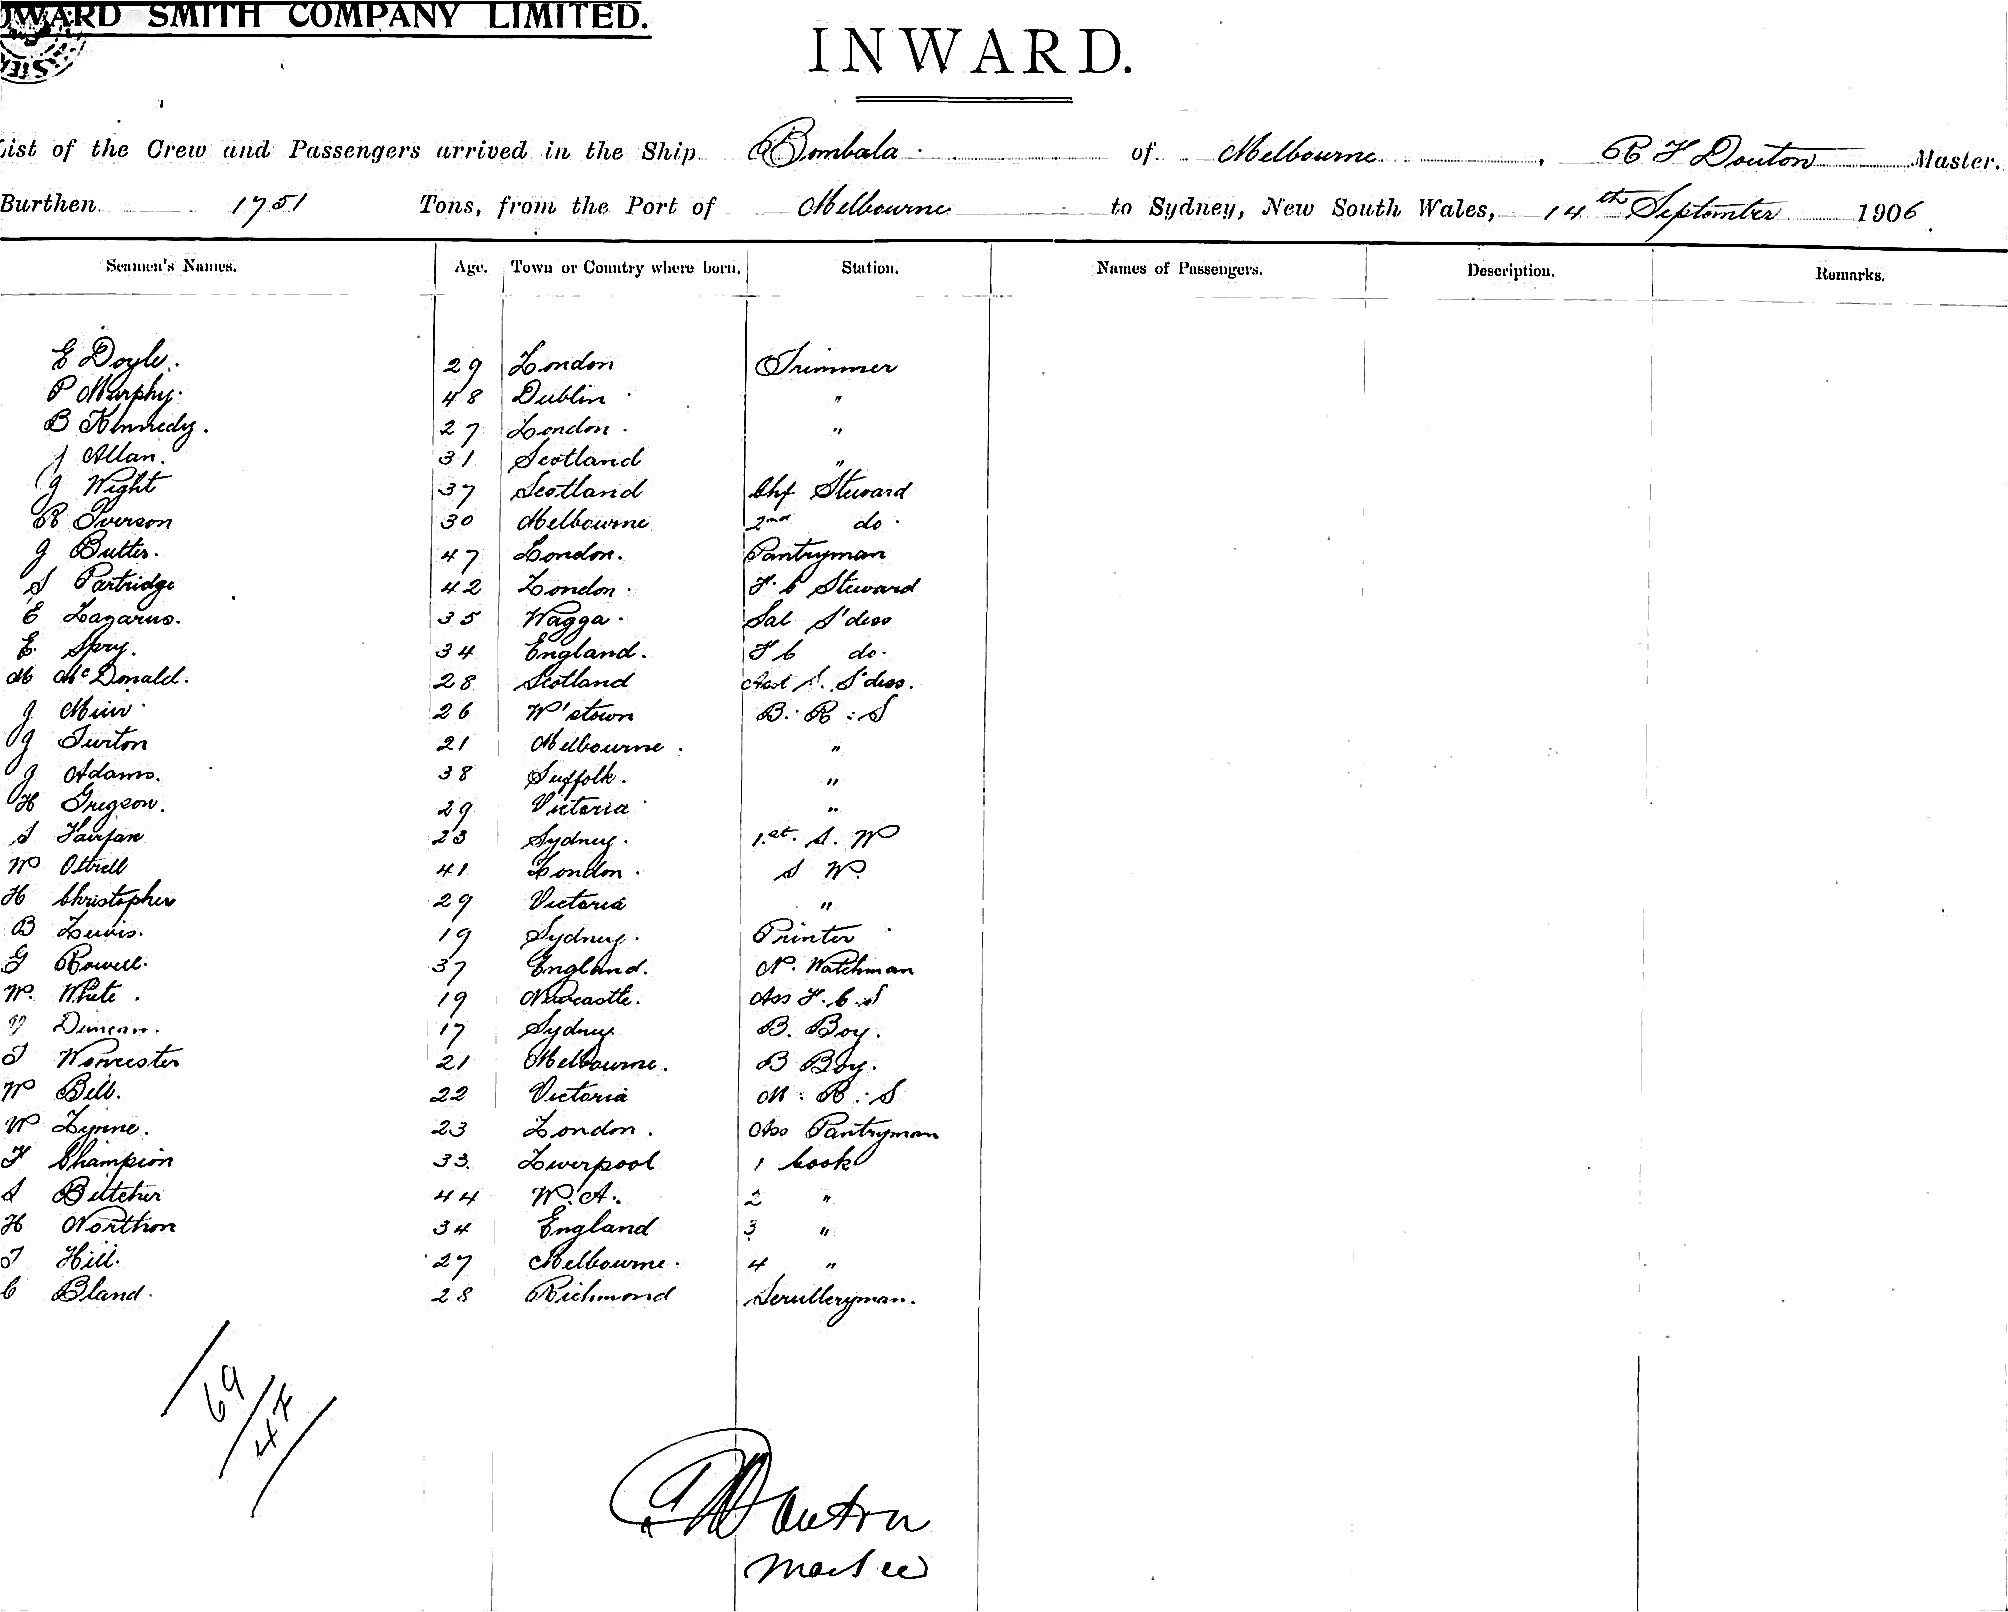 OWARD SMITH COMPANY LIMITED.
INWARD.
List of the Crew and Passengers arrived in the Ship Bombala of Melbourne, R F Douton Master.
Burthen 1751 Tons, from the Port of Melbourne to Sydney, New South Wales, 14th September 1906
Seamen's Names. Age. Town or Country where born. Station. Names of Passengers. Description. Remarks.
E Doyle. 29 London Trimmer
P Murphy. 48 Dublin "
B Kennedy. 27 London. "
J Allan. 31 Scotland "
J Wight 37 Scotland Chf Steward
R Iverson 30 Melbourne 2nd do.
J Butter. 47 London. Pantryman
S Partridge 42 London. F. C Steward
E Lazarus. 35 Wagga. Sal S'dess
E. Spry. 34 England. F C do.
M McDonald. 28 Scotland Asst S. S'dess.
J Muir 26 W'stown B. R : S
J Turton 21 Melbourne. "
J Adams. 38 Suffolk. "
H Gregson. 29 Victoria "
S Fairfax 23 Sydney. 1st. S. W
W Ottrell 41 London. S W.
H Christopher 29 Victoria "
B Lewis. 19 Sydney. Printer
G Rowell. 37 England. N. Watchman
W. White. 19 Newcastle. Ass F. C. S
Duncan. 17 Sydney B. Boy.
T Worcester 21 Melbourne. B Boy.
W Bell. 22 Victoria M : R : S
W Lynne. 23 London. Ass Pantryman
F Champion 33. Liverpool 1 Cook
S Butcher 44 W. A. 2 "
H Northon 34 England 3 "
T Hill. 27 Melbourne. 4 "
C Bland. 28 Richmond Scrulleryman.
69
R F Douton
Master